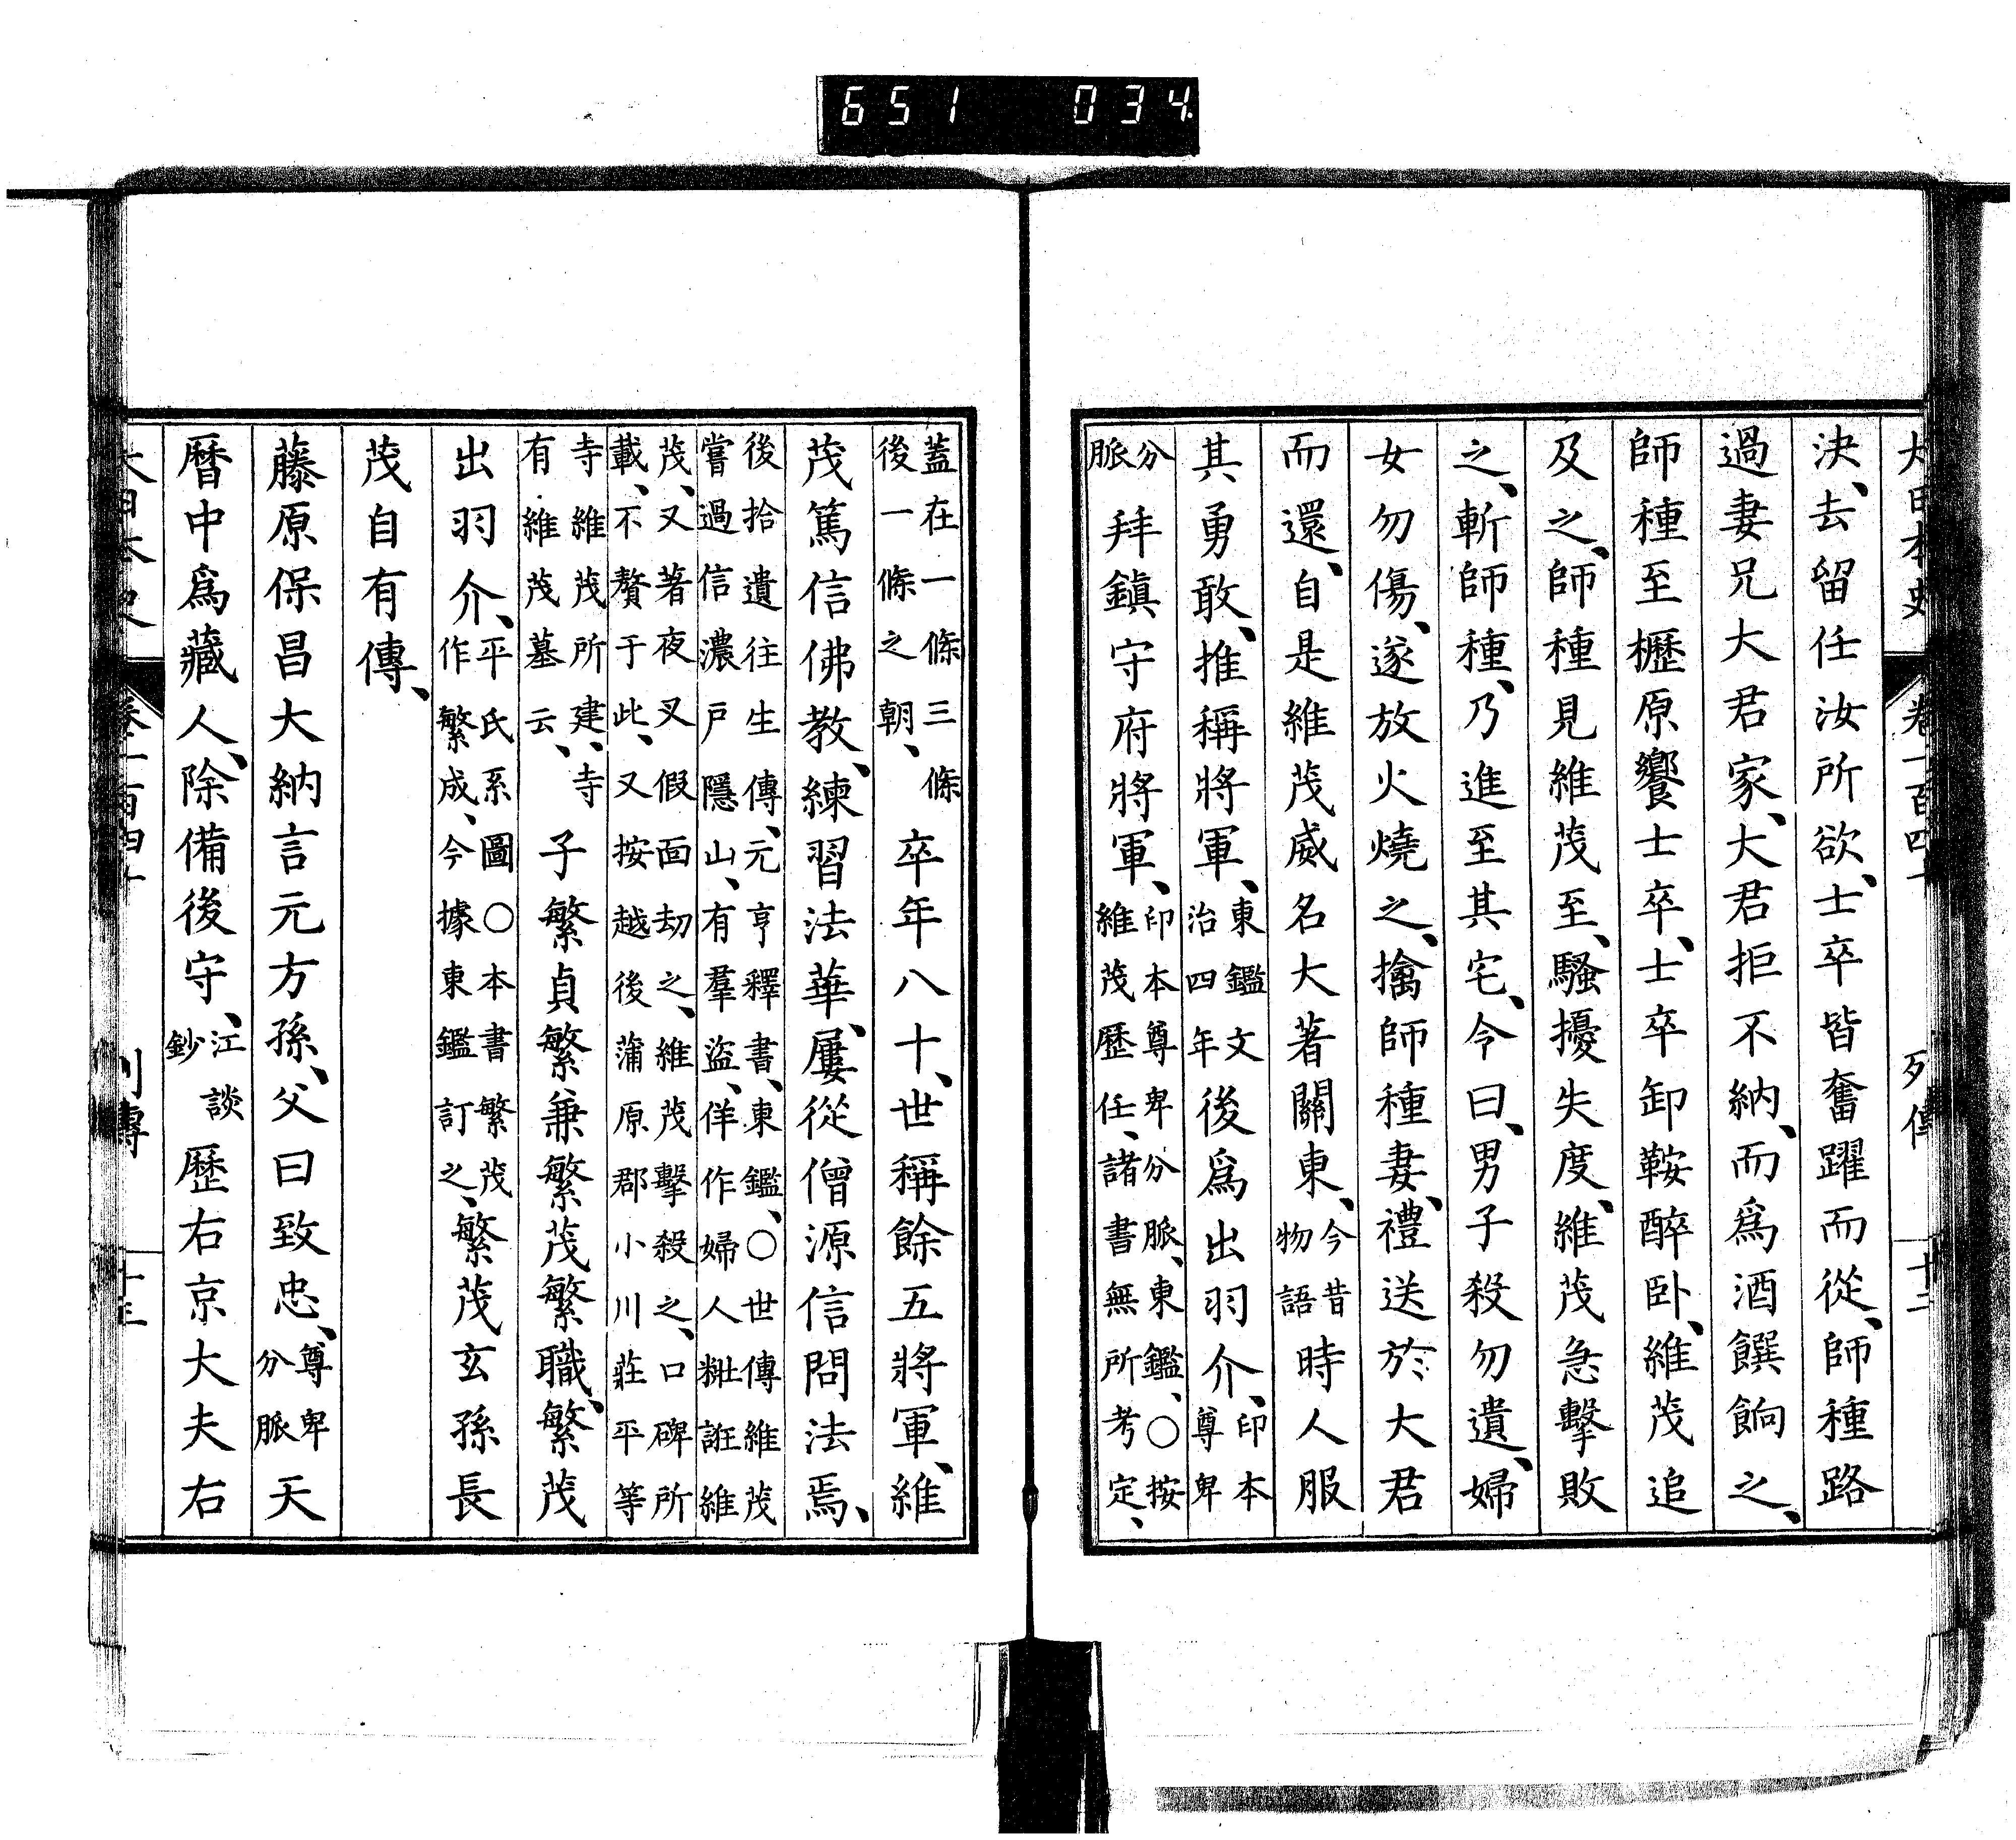 651 034
大日本史 卷一百四十 列傳 十二
決、去留任汝所欲、士卒皆奮躍而從、師種路
過妻兄大君家、大君拒不納、而爲酒饌餉之、
師種至櫪原饗士卒、士卒卸鞍醉臥、維茂追
及之、師種見維茂至、騷擾失度、維茂急擊敗
之、斬師種、乃進至其宅、令曰、男子殺勿遺、婦
女勿傷、遂放火燒之、擒師種妻、禮送於大君
而還、自是維茂威名大著關東、今昔物語時人服
其勇敢、推稱將軍、東鑑文治四年後爲出羽介、印本尊卑
分脈拜鎮守府將軍、印本尊卑分脈、東鑑、○按維茂歷任、諸書無所考定、
蓋在一條三條後一條之朝、卒年八十、世稱餘五將軍、維
茂篤信佛教、練習法華、屢從僧源信問法焉、
後拾遺往生傳、元亨釋書、東鑑、○世傳維茂嘗過信濃戶隱山、有羣盜、佯作婦人粧誑維
茂、又著夜叉假面劫之、維茂擊殺之、口碑所載、不贅于此、又按越後蒲原郡小川莊平等
寺維茂所建、寺有維茂墓云、子繁貞繁兼繁茂繁職、繁茂
出羽介、平氏系圖○本書繁茂作繁成、今據東鑑訂之、繁茂玄孫長
茂自有傳、
藤原保昌大納言元方孫、父曰致忠、尊卑分脈天
曆中爲藏人、除備後守、江談鈔歷右京大夫右
大日本史 卷一百四十 列傳 十三